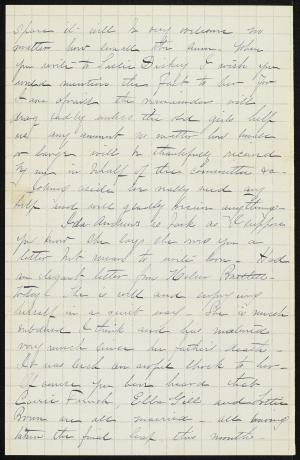 spare it will be very welcome no
matter how small the sum. When
you write to Sallie Dickey I wish you
would mention the fact to her for
I am afraid the remainder will
drag sadly unless the old girls help
us. any amount no matter how small
or large will be thankfully received
by me in behalf of the committee &c.
Joking aside we really need any
help and will gladly receive anything.
Ida Andrews is back as I suppose
you know. She says she owes you a
letter but means to write soon. Had
an elegant letter from Helen
today. She is well and enjoying
herself in a quiet way. She is much
subdued I think and has matured
very much since her father's death.
It was such an awful shock to her.
Of course you have heard that
Carrie French, Ella Gill and Lottie
Brown are all married - all having
taken the final leap this month.